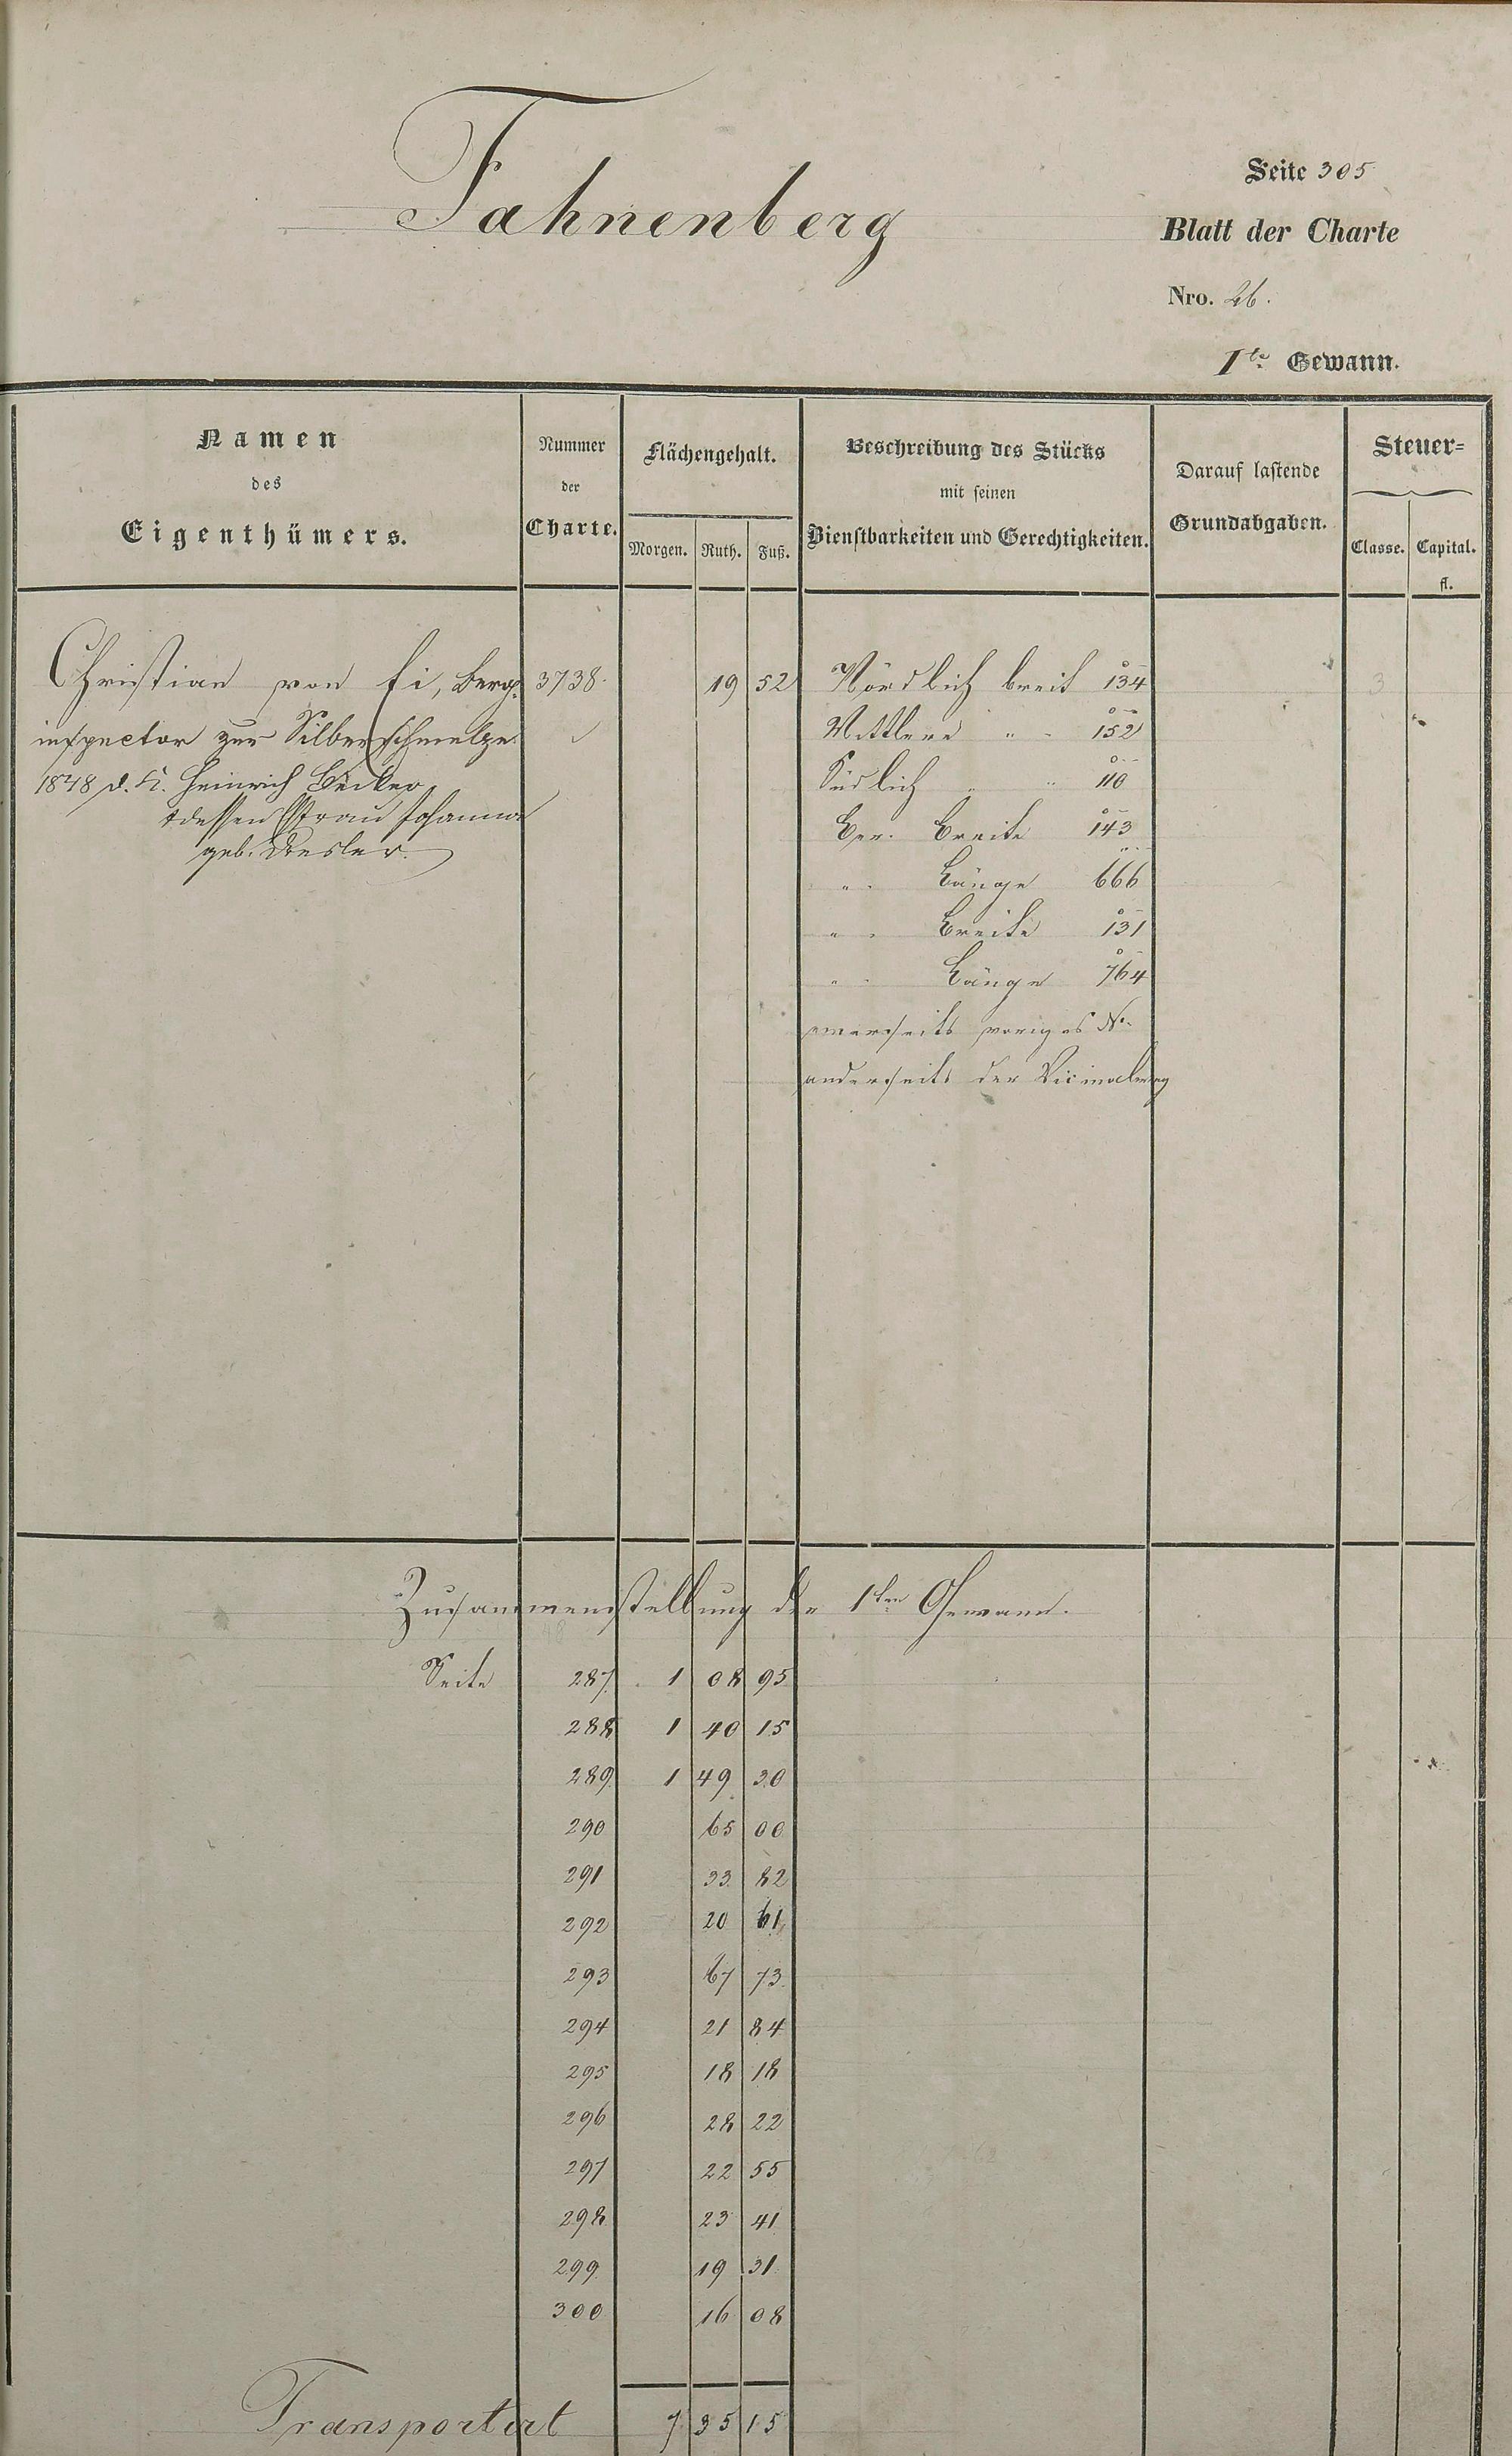 Fahnenberg
Seite 305
Blatt der Charte
Nro. 26.
1te Gewann.
Namen des Eigenthümers.
Nummer der Charte.
Flächengehalt.
Morgen. Ruth. Fuß.
Beschreibung des Stücks mit seinen Dienstbarkeiten und Gerechtigkeiten.
Darauf lastende Grundabgaben.
Steuer=
Classe. Capital. fl.
Christian von Ei, Berg= 3738. 19 52 Nördlich breit 134 3
inspector zur Silberschmelze. Mittlere " 152
1848 d. K. Heinrich Becker Südlich " 110
& dessen Ehefrau Johanna Ber. Breite 143
geb. Dresler.
" Länge 666
" Breite 131
" Länge 764
einerseits voriges No.
anderseits der Vicinalweg
Zusammenstellung der 1ten Gewann.
Seite 287. 1 08 95
288 1 40 15
289. 1 49 30
290 65 00
291 33 82
292 20 61
293 67 73
294 21 84
295 18 18
296 28 22
297 22 55
298 23 41
299 19 31
300 16 08
Transportirt 7 35 15